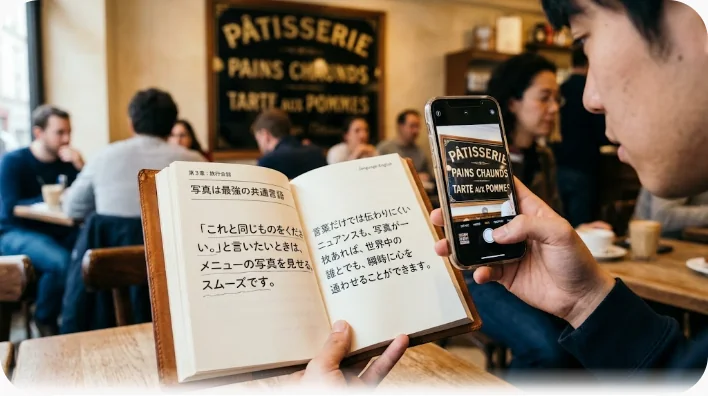 PÂTISSERIE
PAINS CHAUNDS
TARTE AUX POMMES
第3章:旅行会話
写真は最強の共通言語
「これと同じものをくださ
い。」と言いたいときは、
メニューの写真を見せる
スムーズです。
Language·English
言葉だけでは伝わりにくい
ニュアンスも、写真が一
枚あれば、世界中の
誰とでも、瞬時に心を
通わせることができます。
PÂTISSERIE
PAINS CHAUNDS
TARTE AUX POMMES